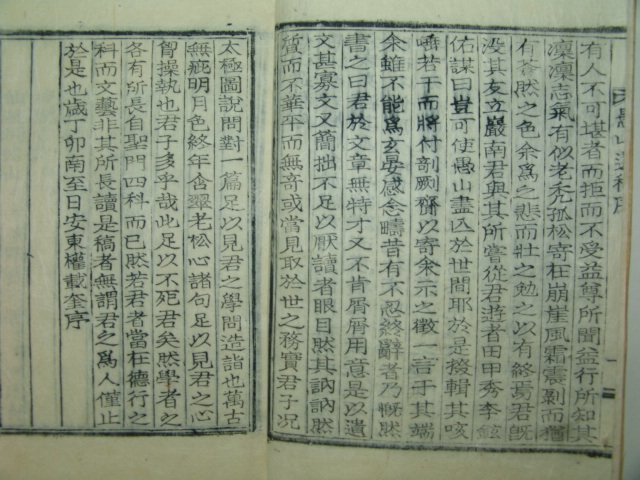 有人不可堪者而拒而不受益尊所聞益行所知其
凜凜志氣有似老禿孤松寄在崩崖風霜震剝而猶
有蒼然之色余爲之悲而壯之勉之以有終焉君旣
沒其友立巖南君與其所嘗從君遊者田甲秀李鉉
佑謀曰豈可使愚山盡囚於世間耶於是掇輯其咳
唾若干而將付剞劂齎以寄余示之徵一言于其端
余雖不能爲玄晏感念疇昔有不忍終辭者乃慨然
書之曰君於文章無特才又不肯屑屑用意是以遺
文甚寡文又簡拙不足以厭讀者眼目然其訥訥然
質而不華平而無奇或當見取於世之務實君子況
太極圖說問對一篇足以見君之學問造詣也萬古
無疵明月色終年含翠老松心諸句足以見君之心
胷操執也君子多乎哉此足以不死君矣然學者之
各有所長自聖門四科而已然若君者當在德行之
科而文藝非其所長讀是稿者無謂君之爲人僅止
於是也歲丁卯南至日安東權載奎序